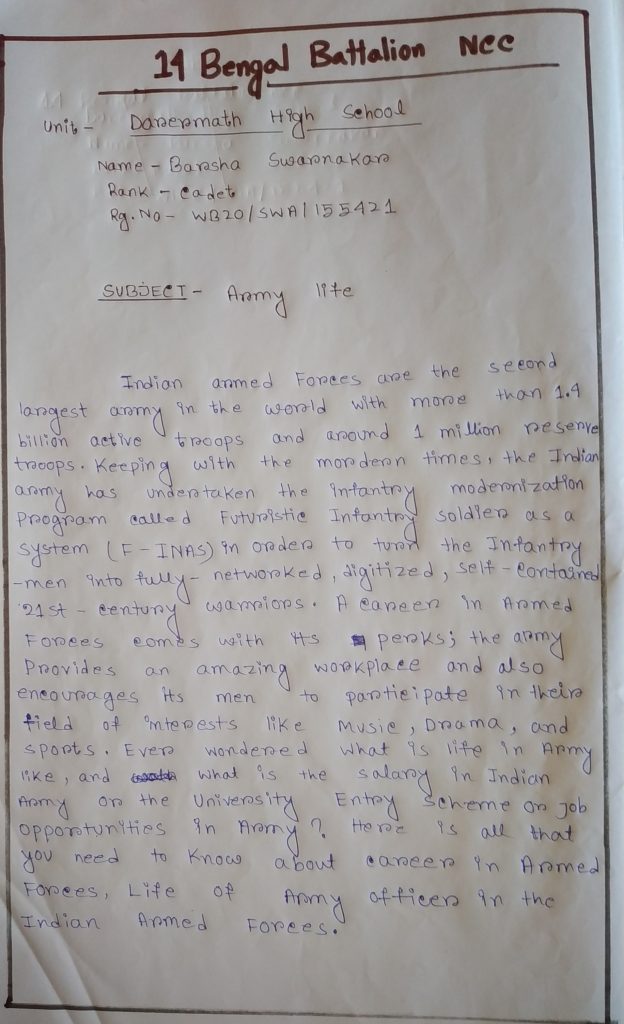 14 Bengal Battalion NCC
Unit - Dareermath High School
Name - Barsha Swarnakar
Rank - Cadet
Rg. No - WB20/SWA/155421
SUBJECT - Army life
Indian armed Forces are the second
largest army in the world with more than 1.4
billion active troops and around 1 million reserve
troops. Keeping with the mordern times, the Indian
army has undertaken the infantry modernization
Program called Futuristic Infantry soldier as a
system (F-INAS) in order to turn the Infantry
-men into fully-networked, digitized, self-contained
'21st-century warriors. A career in Armed
Forces comes with its perks; the army
Provides an amazing workplace and also
encourages its men to participate in their
field of interests like Music, Drama, and
sports. Ever wondered what is life in Army
like, and what is the salary in Indian
Army or the University Entry scheme or job
opportunities in Army? Here is all that
you need to know about career in Armed
Forces, Life of Army officer in the
Indian Armed Forces.